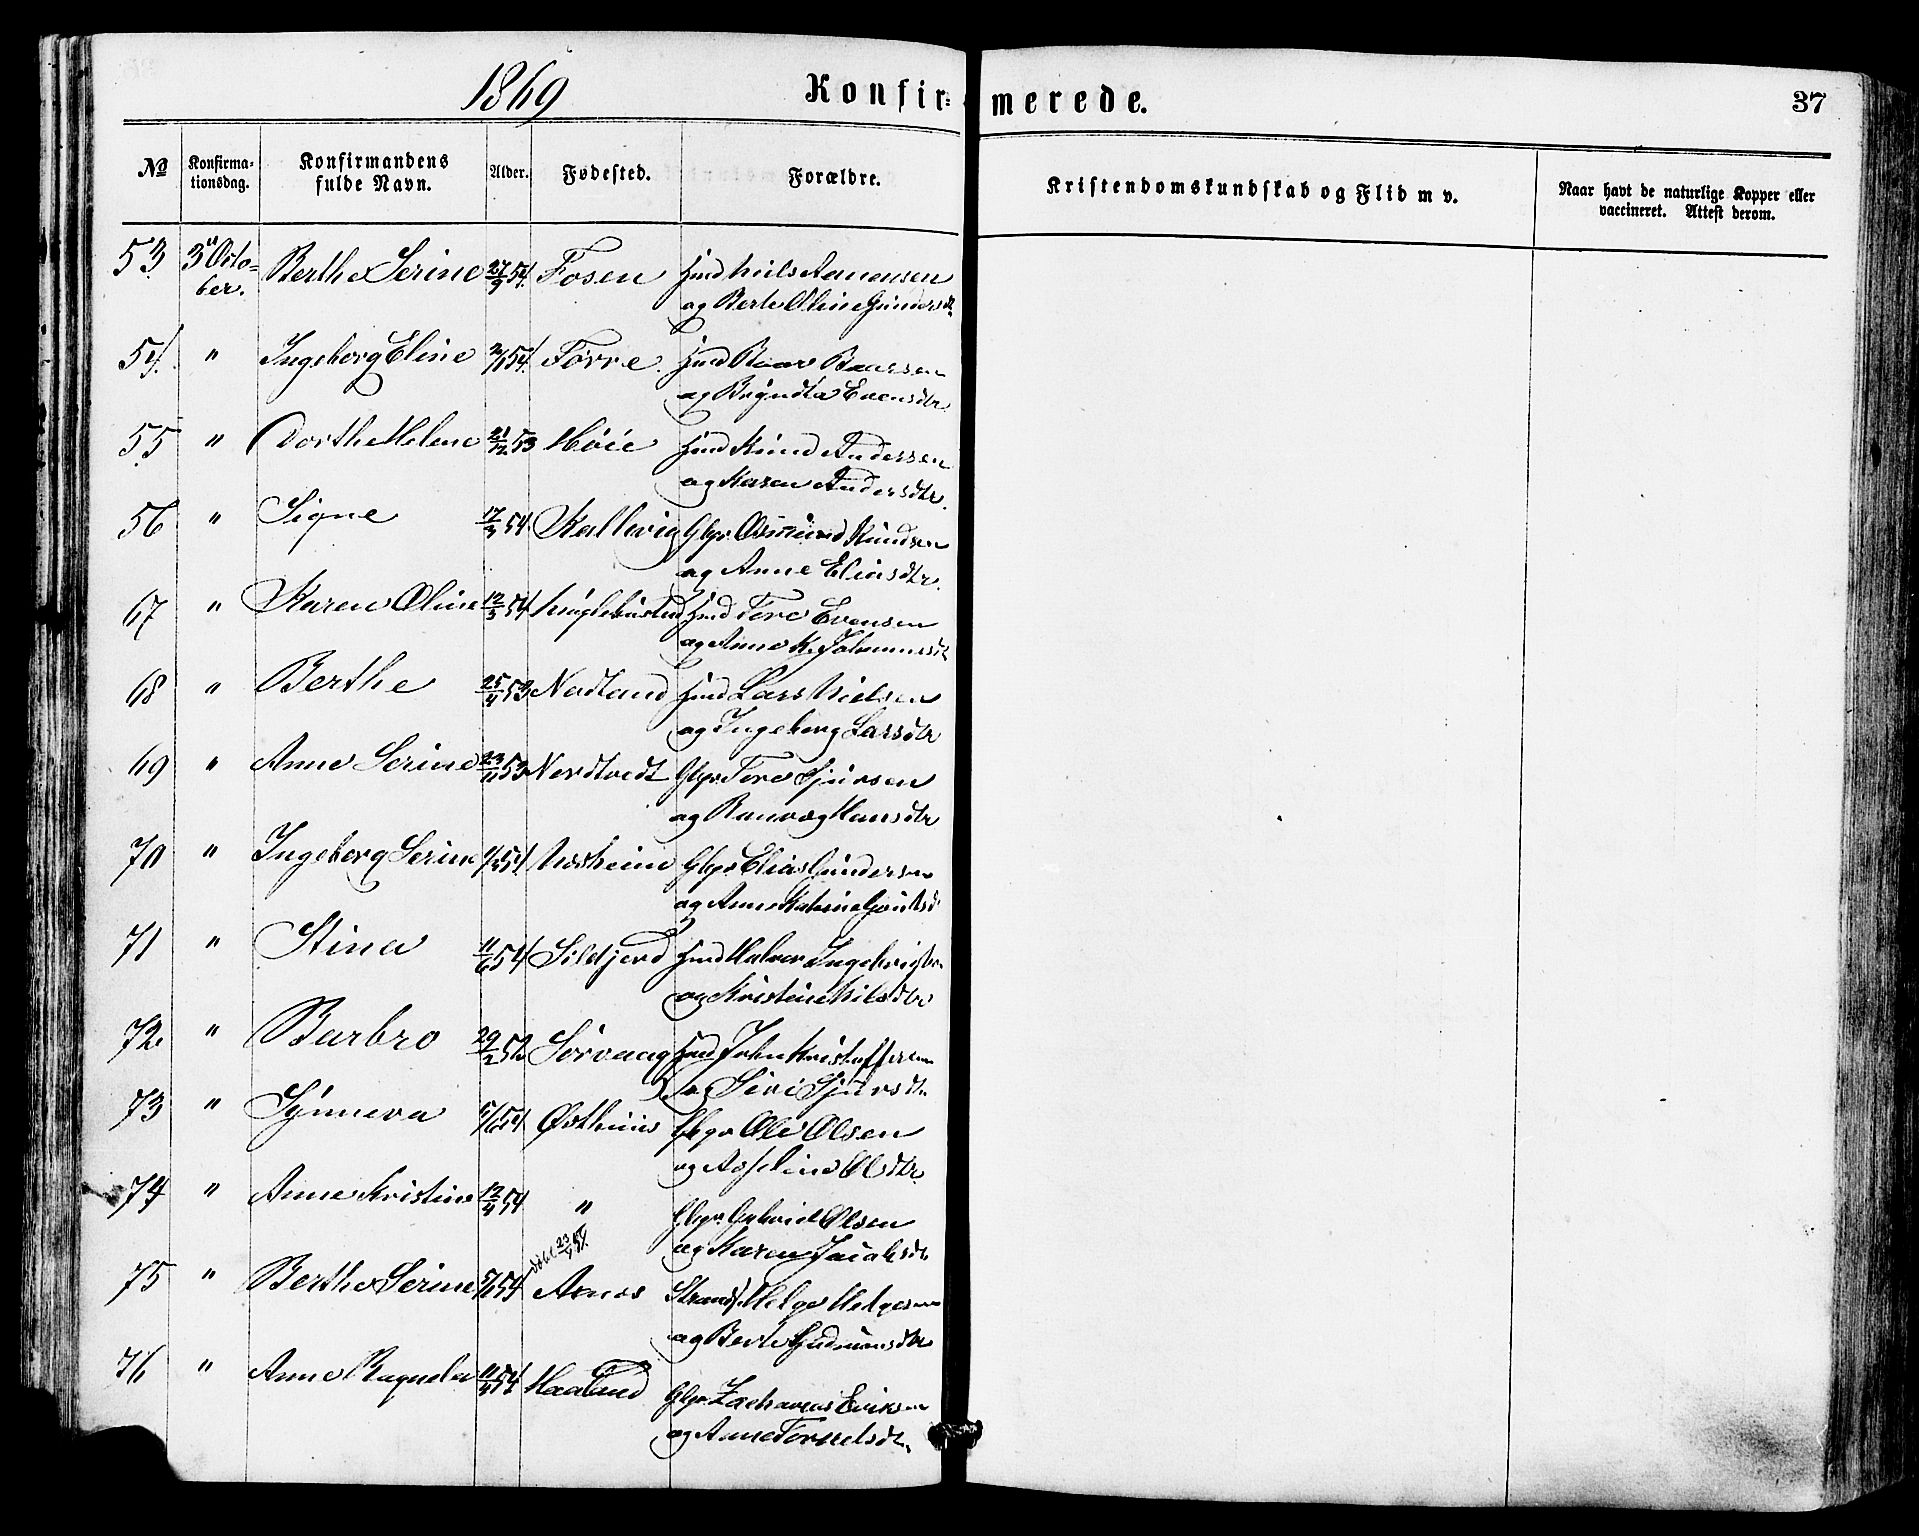 1869 Konfir= merede. 37
No Konfirma-tionsdag. Konfirmandens fulde Navn. Alder. Fødested. Forældre. Kristendomskundskab og Flid m v. Naar havt de naturlige Kopper eller vaccineret. Attest derom.
53 3 Octo- Berthe Serine 27/9 54. Fosen
ber. og Berte Oline Gundersdt
54. " Ingeborg Eline 54. Førre Hmd Baar Baarsen
og Evensdtr
55 " Dorthe Helene 21/12 53 Høie Hmd Knud Andersen
og Karen Andersdtr.
56 " Signe 17/3 54. Kallevig Gbr. Osmund Knudsen
og Anne Eliasdtr.
67 " Karen Oline 12/3 54 Hmd Tore Evensen
og Anne K. Johannesdt
68 " Berthe 25/4 53 Nodland Hmd Lars Nielsen
og Ingeborg Larsdtr
69 " Anne Serine 23/11 53 Nordtvedt Gbr. Tore Sjursen
og Ranvag Hansdtr
70 " Ingeborg Serine 54. Norheim Gbr. Elias Gundersen
og Anne
71 " Stina 11/6 54 Sildfjerd Hmd Halvor Ingebrigts.
og Kristine Nilsdtr
72. " Barbro 29/2 52 Sørvaag Hmd John Kristoffersen
og Siri Sjursdt.
73 " Synneva 5/6 54 Østhuus Gbr. Ole Olsen
og Olsdtr.
74 " Anne Kristine 12/4 54 " Gbr. Gabriel Olsen
og Karen Jacobsdt.
døbt 23/4 54.
75 " Berthe Serine 54 Strands. Helge Helgesen
og Berte Gudmunsdtr
76 " Anne Ragnela 11/4 54 Haaland Gbr. Zacharias Eriksen
og Anne